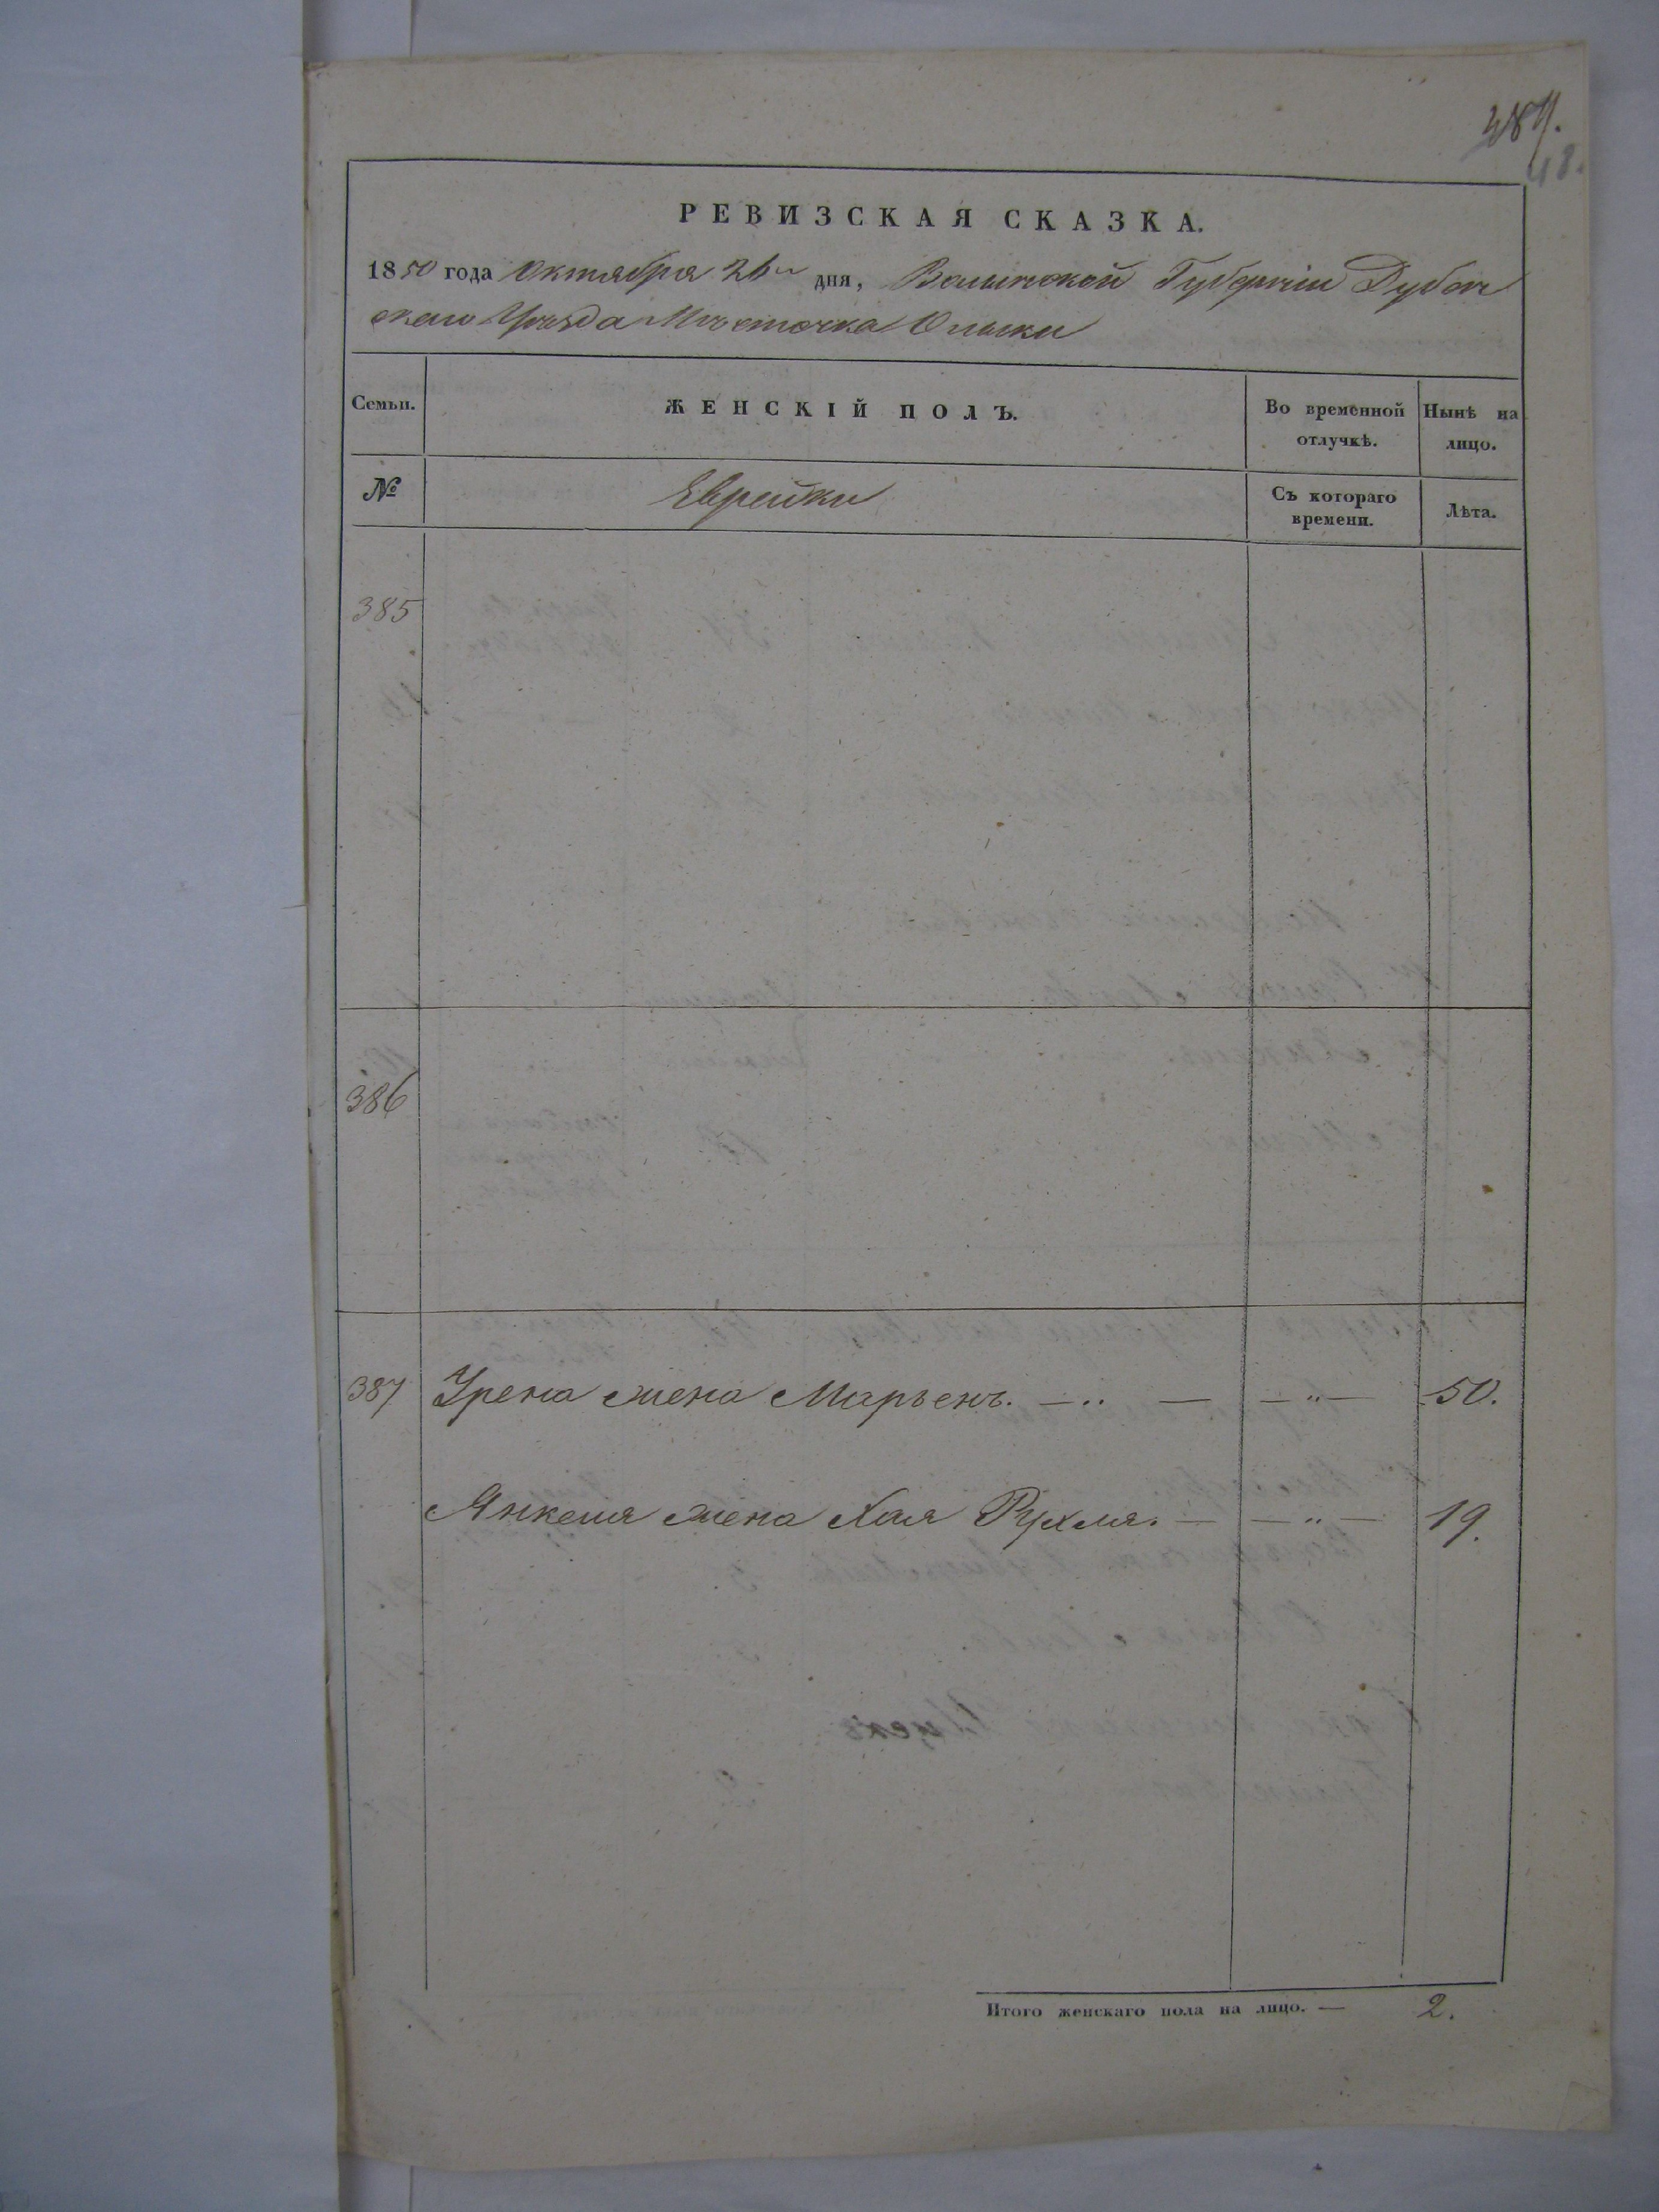 48.
РЕВИЗСКАЯ СКАЗКА.
1850 года Октября 26го дня, Волынской Губерніи Дубен
скаго Уѣзда Мѣсточка Олыки
Семьи. ЖЕНСКІЙ ПОЛЪ. Во временной отлучкѣ. Нынѣ на лицо.
№ Еврейки Съ котораго времени. Лѣта.
385
386
387 жена Марьемъ. — " — — " — 50.
Янкеля жена Хая Рухля. — — " — 19.
Итого женскаго пола на лицо. — 2.